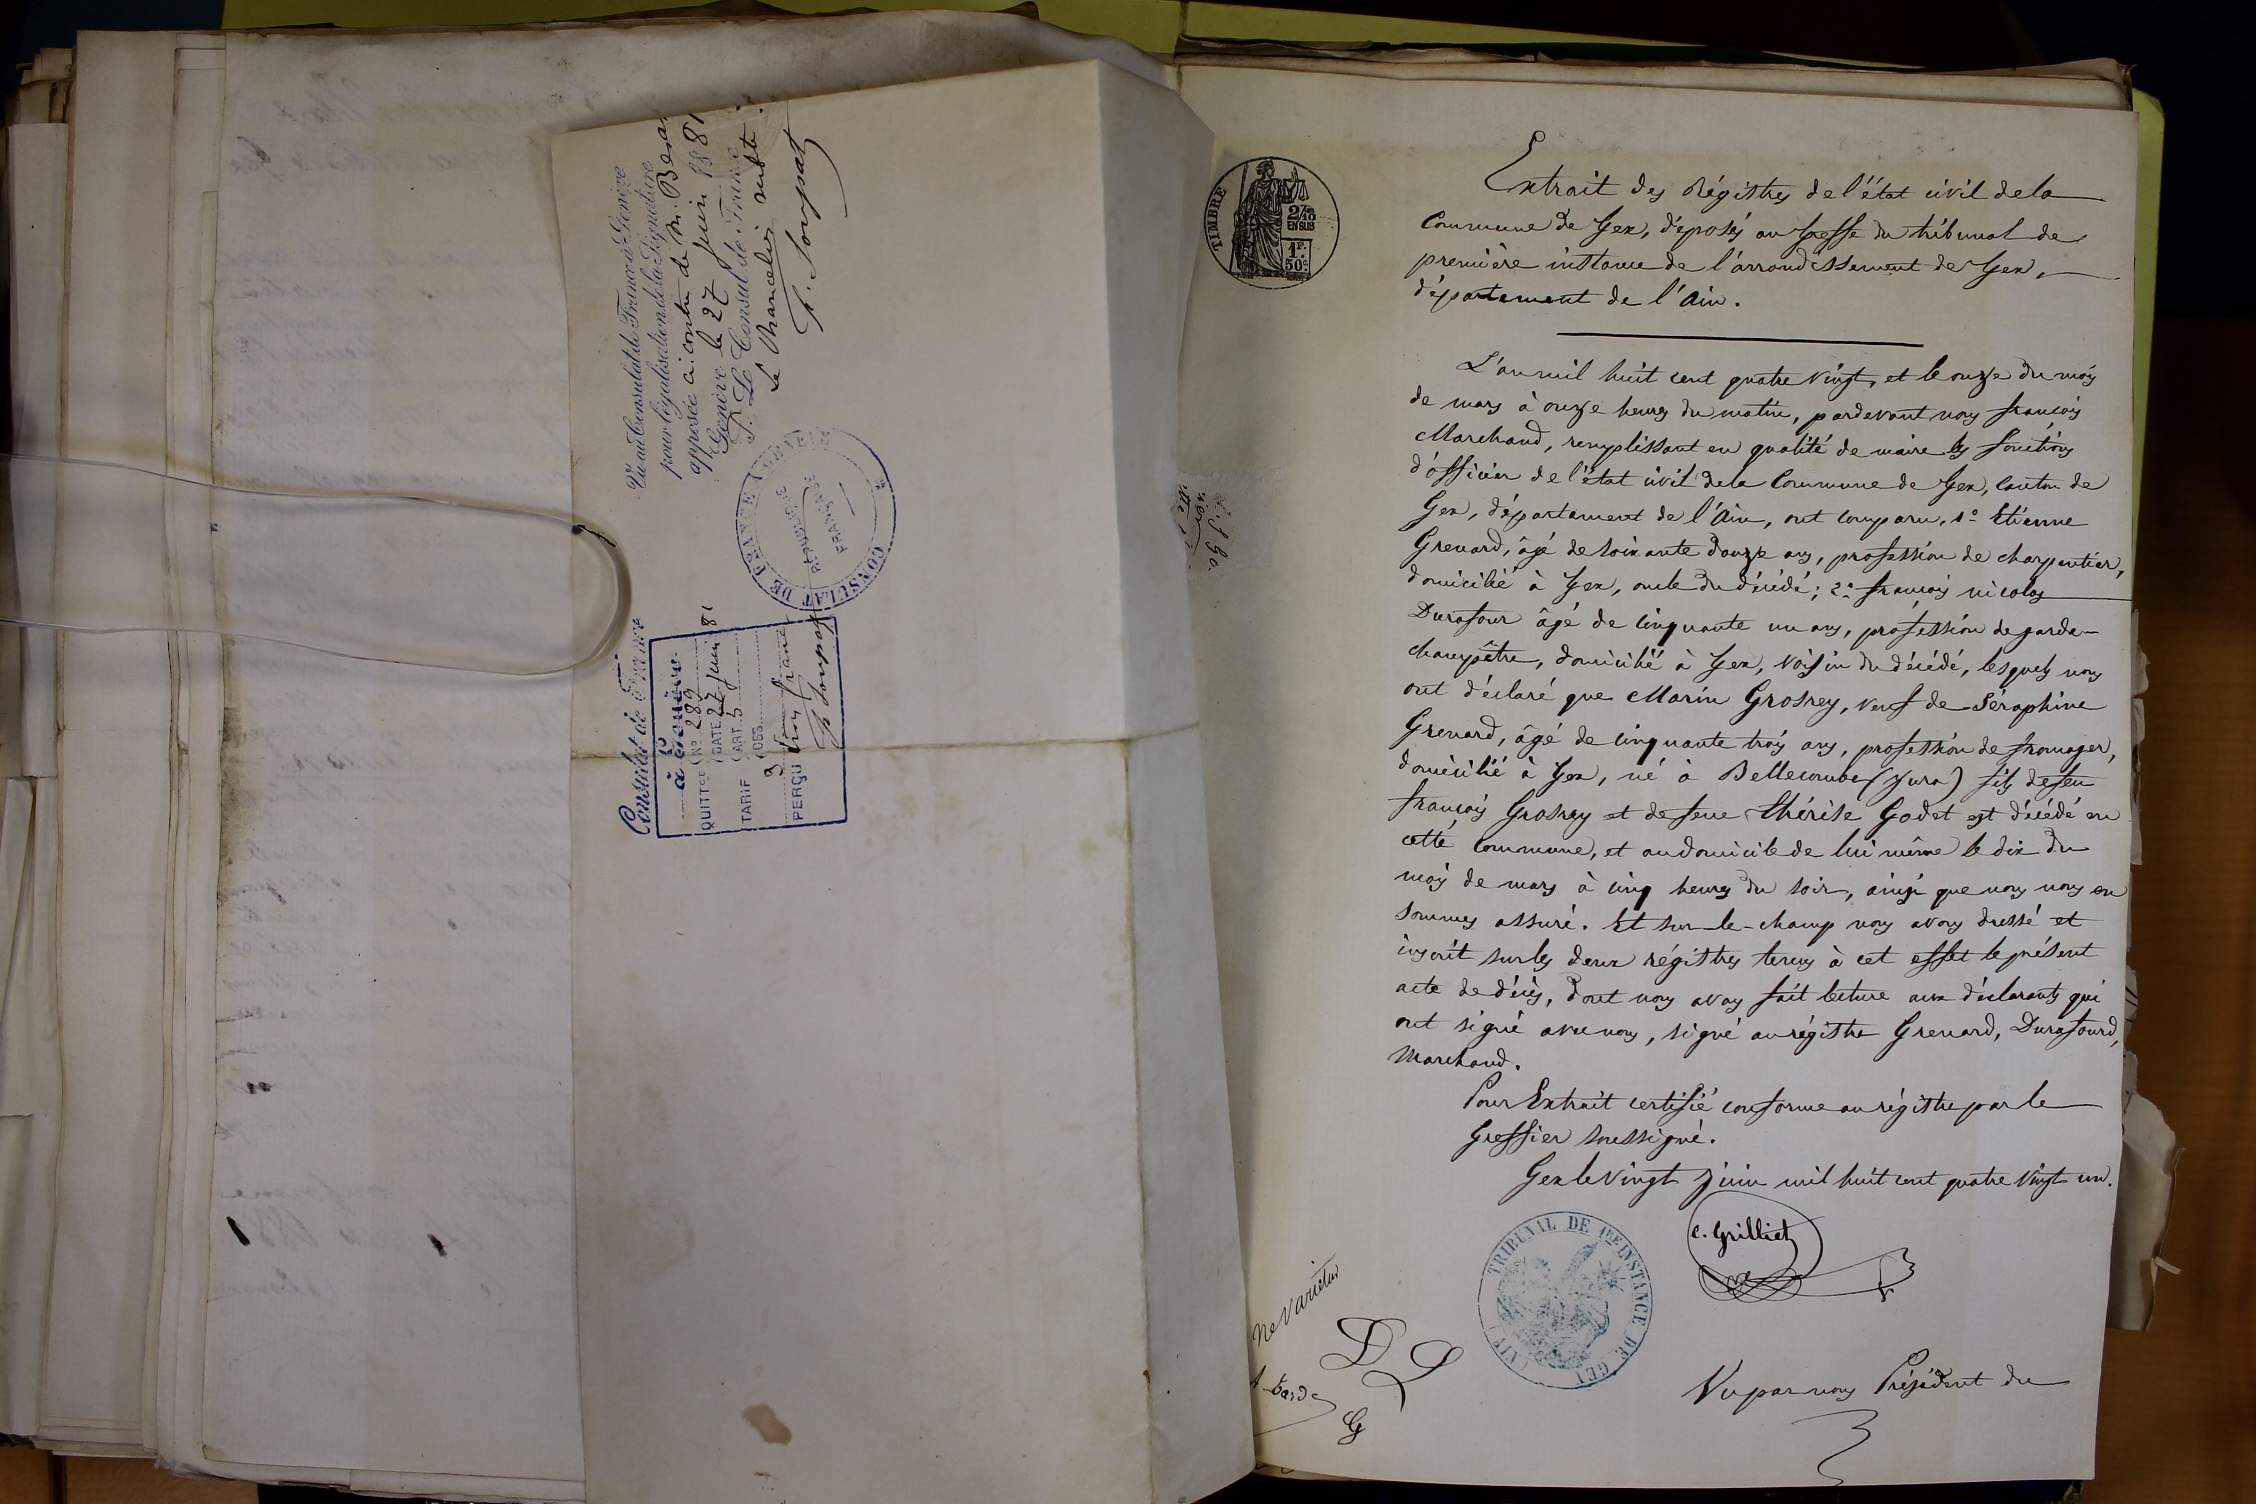 Vu au Consulat de France à Genève
pour légalisation de la Signature
apposée ci-contre de M.
Genève le 27 juin 1881
P. Le Consul de France
Le Chancelier subst.
P. Soupat
CONSULAT DE FRANCE A GENEVE
REPUBLIQUE
FRANCAISE
Consulat de France
à Genève
QUITTCE No 289
DATE 27 juin 81
TARIF ART. 5
DES
PERÇU trois francs
P. Soupat
TIMBRE
2/10
EN SUS
1F.
50c.
Extrait des Régistres de l'état civil de la
Commune de Gex, déposés au Greffe du tribunal de
première instance de l'arrondissement de Gex,
département de l'Ain.
L'an mil huit cent quatre vingt, et le onze du mois
de mars à onze heures du matin, pardevant nous françois
Marchand, remplissant en qualité de maire les fonctions
d'officier de l'état civil de la Commune de Gex, Canton de
Gex, département de l'Ain, ont comparu, 1o Etienne
Grenard, âgé de soixante douze ans, profession de charpentier,
domicilié à Gex, oncle du décédé; 2o françois nicolas
Durafour âgé de cinquante un ans, profession de garde-
champêtre, domicilié à Gex, voisin du décédé, lesquels nous
ont déclaré que Marin Grosrey, veuf de Séraphine
Grenard, âgé de cinquante trois ans, profession de fromager,
domicilié à Gex, né à Bellecombe (Jura) fils de feu
françois Grosrey et de feue Thérèse Godet est décédé en
cette Commune, et au domicile de lui même le dix du
mois de mars à cinq heures du soir, ainsi que nous nous en
sommes assuré. Et sur-le-champ nous avons dressé et
inscrit sur les deux régistres tenus à cet effet le présent
acte de décès, dont nous avons fait lecture aux déclarants qui
ont signé avec nous, signé au régistre Grenard, Durafourd,
Marchand.
Pour Extrait certifié conforme au régistre par le
Greffier soussigné.
Gex le vingt juin mil huit cent quatre vingt un.
C. Grilliet
TRIBUNAL DE 1RE INSTANCE DE GEX (AIN)
Ne Varietur
D L
G
Vu par nous Président du